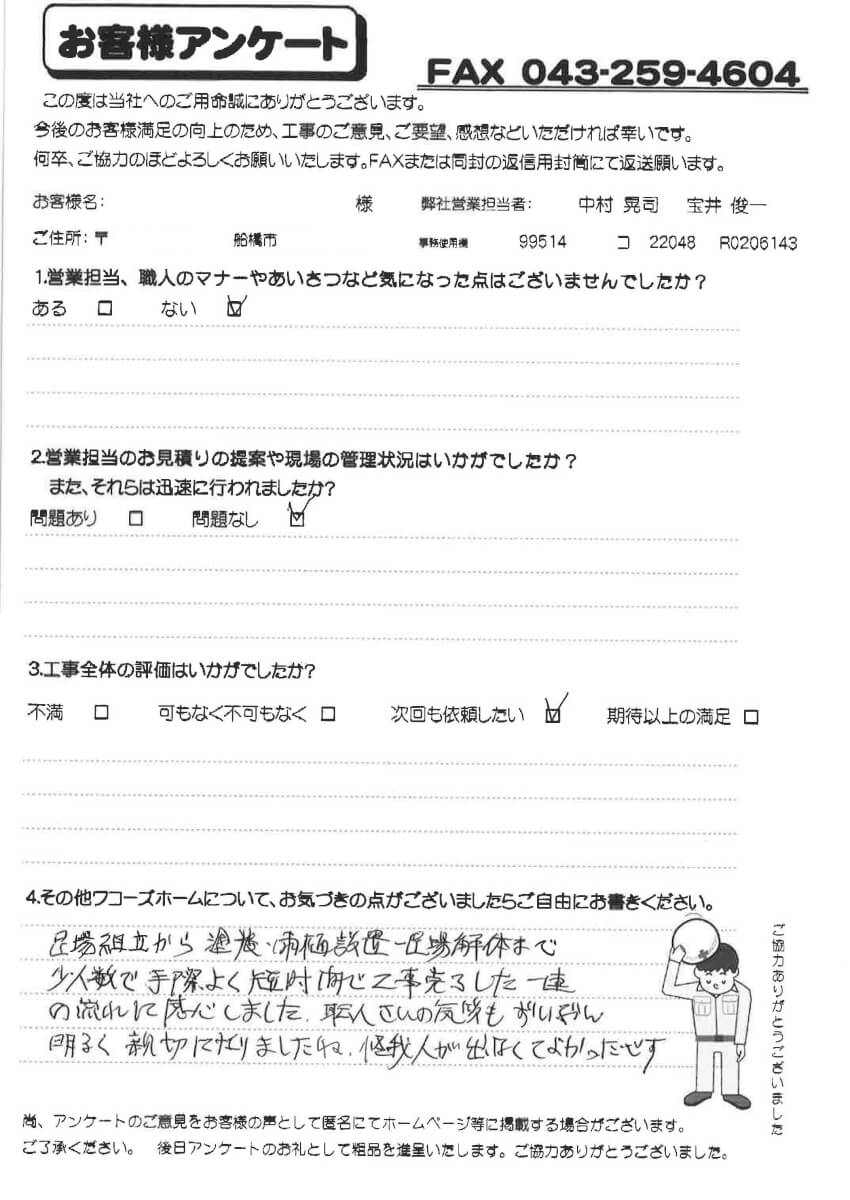 お客様アンケート
FAX 043-259-4604
この度は当社へのご用命誠にありがとうございます。
今後のお客様満足の向上のため、工事のご意見、ご要望、感想などいただければ幸いです。
何卒、ご協力のほどよろしくお願いいたします。FAXまたは同封の返信用封筒にて返送願います。
お客様名: 様 弊社営業担当者: 中村 晃司 宝井 俊一
ご住所:〒 船橋市 事務使用欄 99514 コ 22048 R0206143
1.営業担当、職人のマナーやあいさつなど気になった点はございませんでしたか?
ある □ ない ☑
2.営業担当のお見積りの提案や現場の管理状況はいかがでしたか?
また、それらは迅速に行われましたか?
問題あり □ 問題なし ☑
3.工事全体の評価はいかがでしたか?
不満 □ 可もなく不可もなく □ 次回も依頼したい ☑ 期待以上の満足 □
4.その他ワコーズホームについて、お気づきの点がございましたらご自由にお書きください。
足場組立から 塗装・雨樋設置-足場解体まで
少人数で手際よく短時間で工事完了した一連
の流れに感心しました、職人さんの気質も ずいぶん
明るく 親切になりましたね、怪我人が出なくてよかったです
ご協力ありがとうございました
尚、アンケートのご意見をお客様の声として匿名にてホームページ等に掲載する場合がございます。
ご了承ください。 後日アンケートのお礼として粗品を進呈いたします。ご協力ありがとうございました。